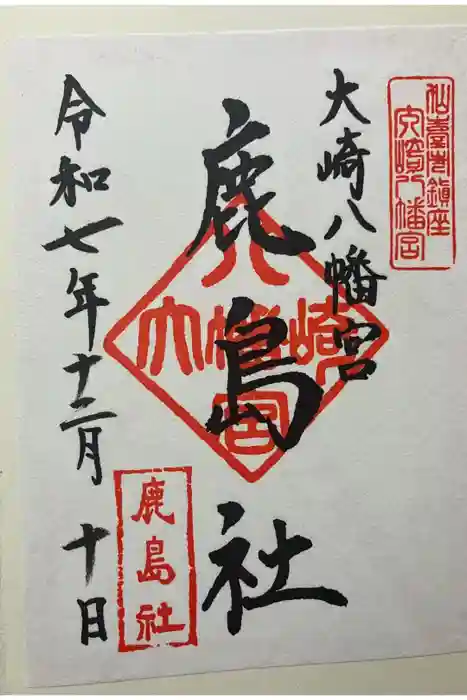 仙臺市鎮座
大崎八幡宮
大崎八幡宮
鹿島社
八
大幡崎
宮
鹿島社
令和七年十二月十日